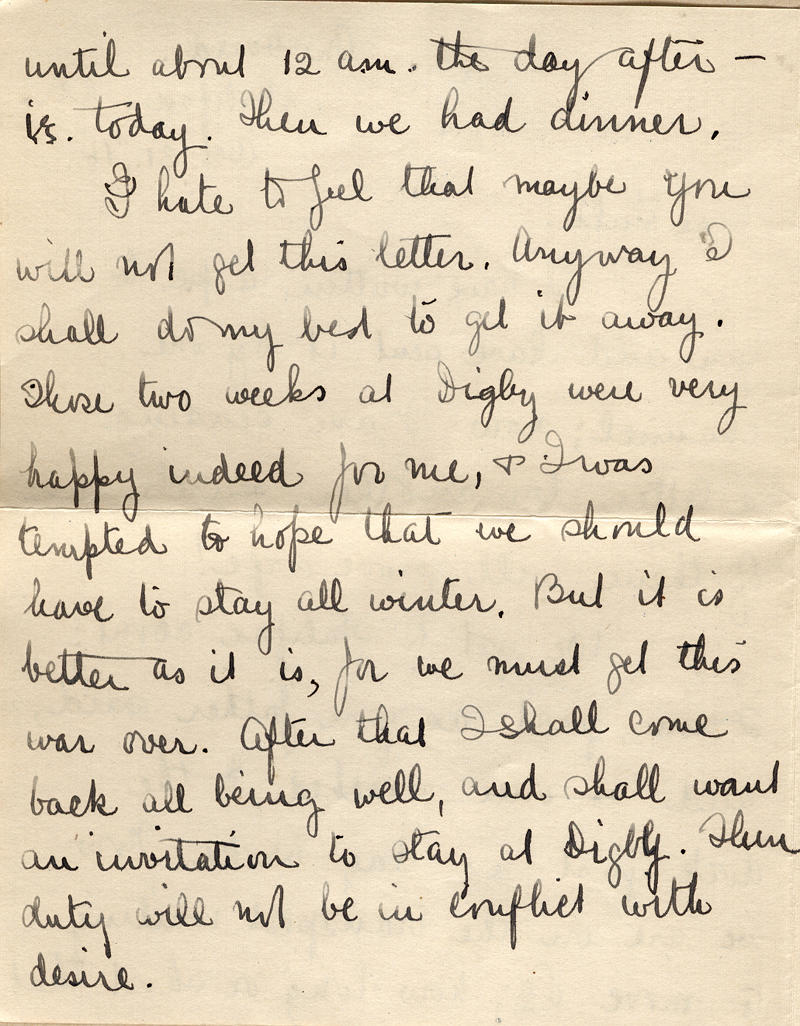 until about 12 am. the day after –
is. today. Then we had dinner.
I hate to feel that maybe you
will not get this letter. Anyway I
shall do my best to get it away.
Those two weeks at Digby were very
happy indeed for me, & I was
tempted to hope that we should
have to stay all winter. But it is
better as it is, for we must get this
war over. After that I shall come
back all being well, and shall want
an invitation to stay at Digby. Then
duty will not be in conflict with
desire.